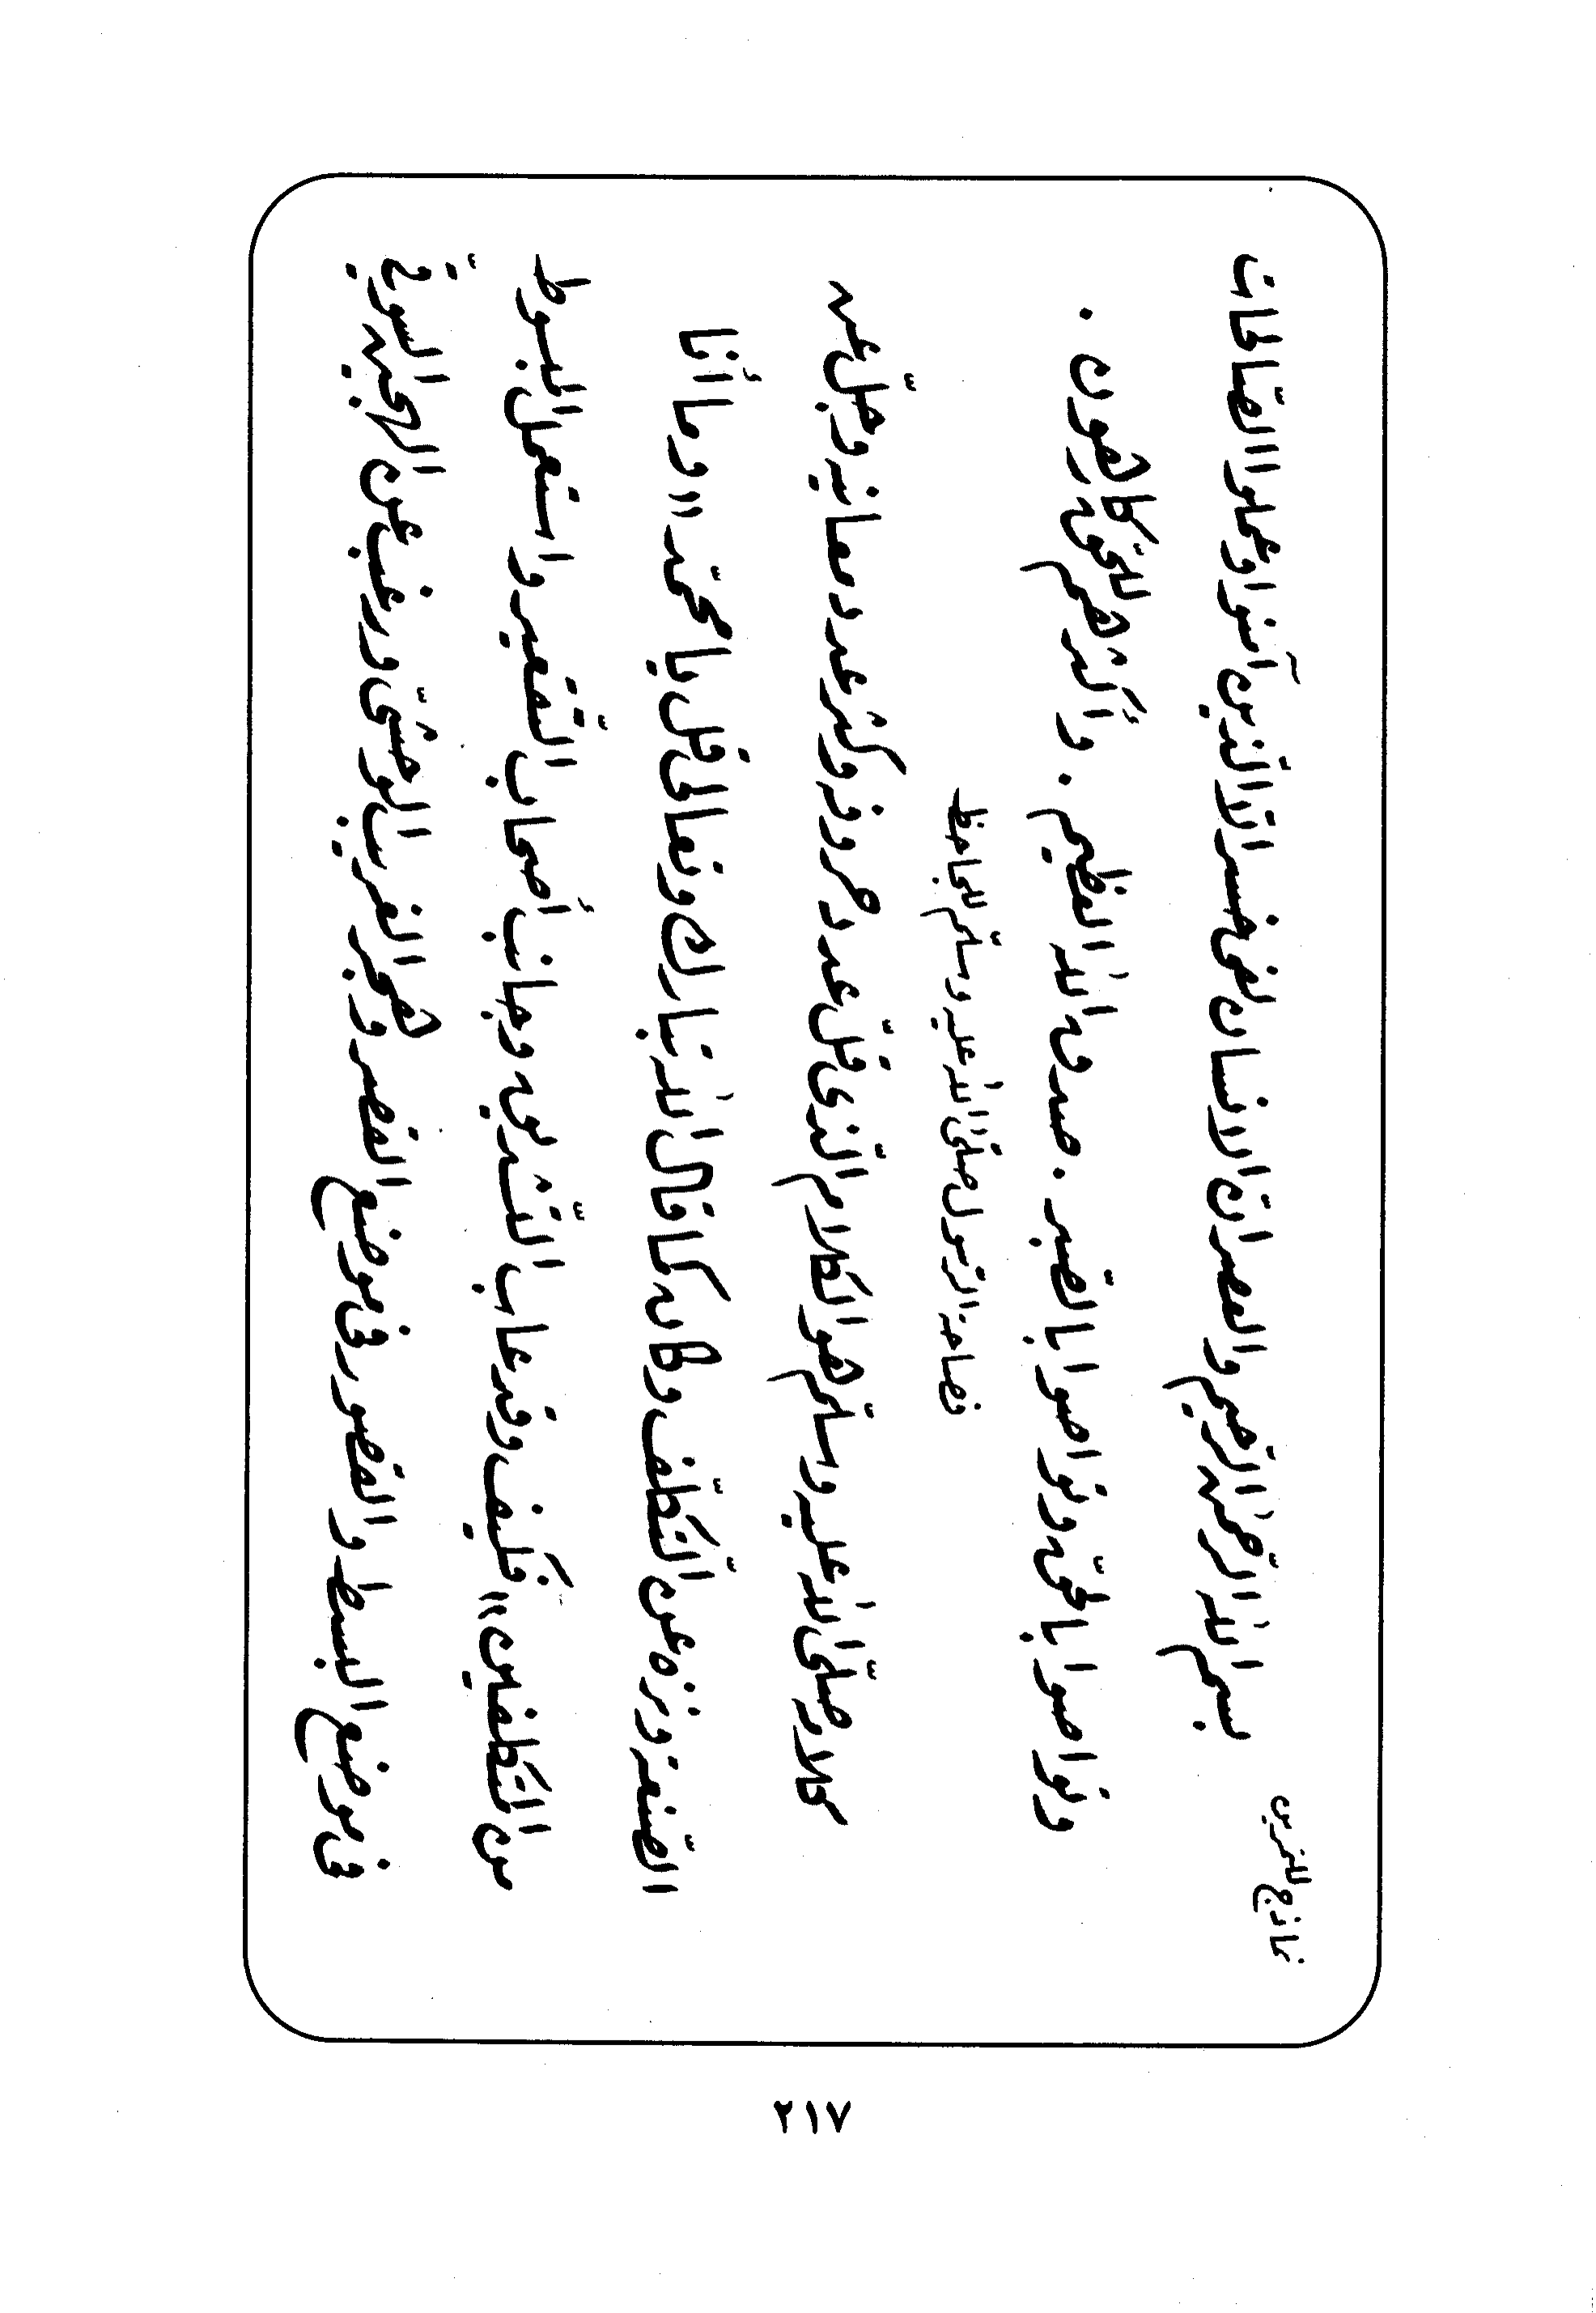 نماذج للتمرين
بسم الله الرّحمن الرّحيم والعصر انّ الانسان لفى خسر الاّ الّذين آمنوا وعملوا الصّالحات
وتواصوا بالحقّ وتواصوا بالصّبر . صدق الله العظيم . وأكثرهم للحقّ كارهون .
فصاحة الرّسول صلّى الله عليه وسلّم للجاحظ
كلامه صلّى الله عليه وسلّم هو الكلام الّذى قلّ عدد حروفه وكثر عدد معانيه وجلّ عن
الصّنعة ونزه عن التّكلّف وكان كما قال الله تبارك وتعالى قل يا محمّد «وما أنا
من المتكلّفين» فكيف وقد عاب التّشديق وجانب أصحاب التّقعير واستعمل المبسوط
فى موضع البسط والمقصور فى موضع القصر وهجر الغريب الوحشىّ ورغب عن الهجين السوقىّ
٢١٧